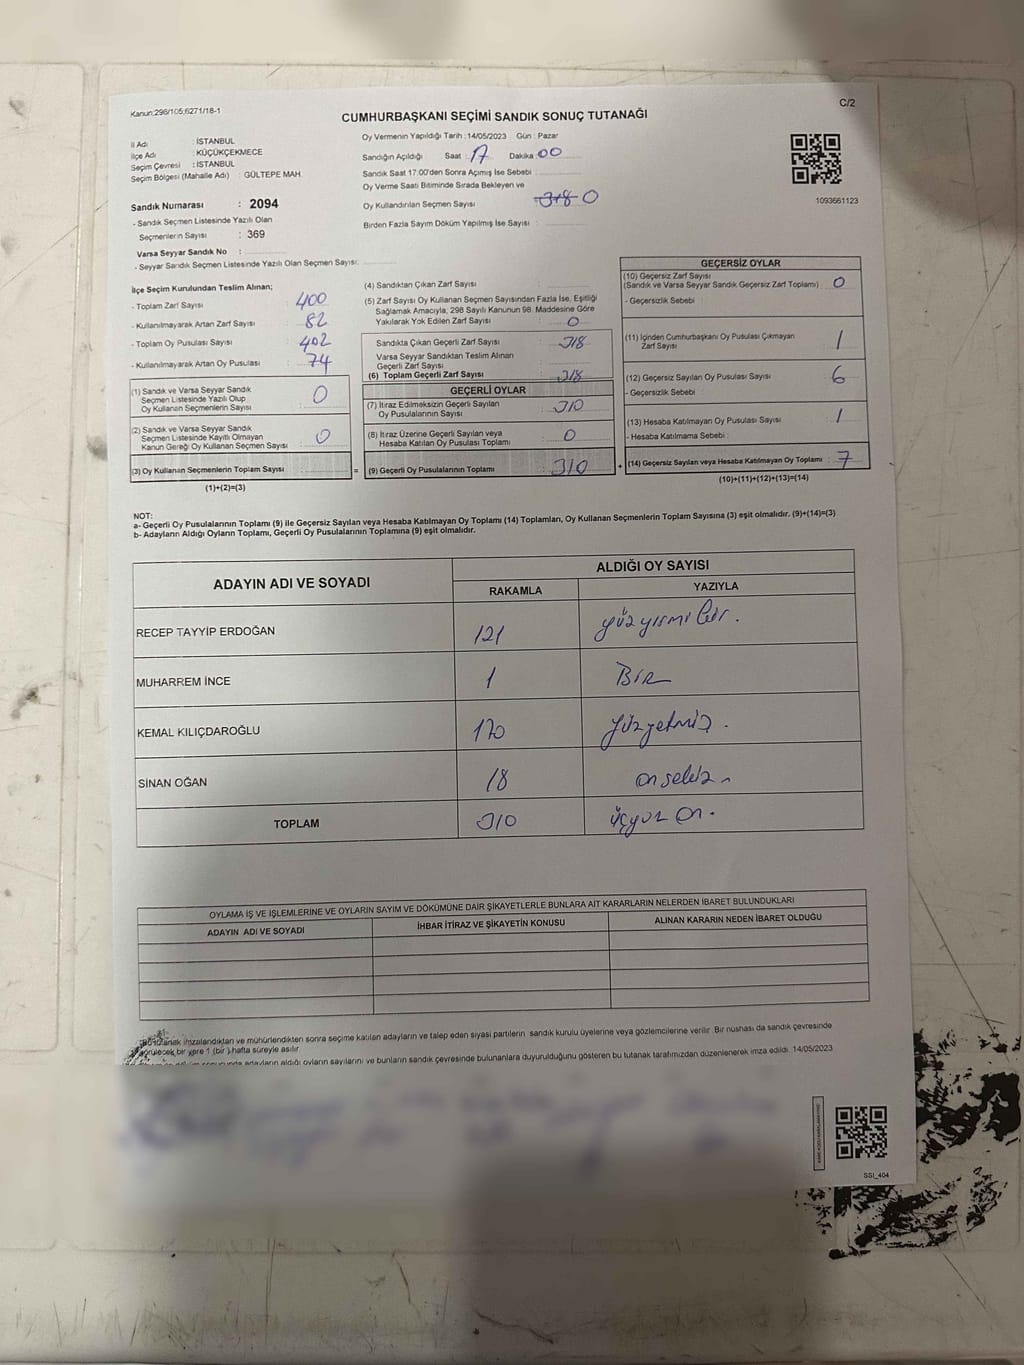 Kanun:298/105;6271/18-1
C/2
CUMHURBAŞKANI SEÇİMİ SANDIK SONUÇ TUTANAĞI
İl Adı : İSTANBUL
İlçe Adı : KÜÇÜKÇEKMECE
Seçim Çevresi : İSTANBUL
Seçim Bölgesi (Mahalle Adı) : GÜLTEPE MAH.
Sandık Numarası : 2094
- Sandık Seçmen Listesinde Yazılı Olan
Seçmenlerin Sayısı : 369
Varsa Seyyar Sandık No :
- Seyyar Sandık Seçmen Listesinde Yazılı Olan Seçmen Sayısı:
Oy Vermenin Yapıldığı Tarih :14/05/2023 Gün : Pazar
Sandığın Açıldığı Saat : 17 Dakika : 00
Sandık Saat 17:00'den Sonra Açımış İse Sebebi :
Oy Verme Saati Bitiminde Sırada Bekleyen ve
Oy Kullandırılan Seçmen Sayısı : 318 0
Birden Fazla Sayım Döküm Yapılmış İse Sayısı :
1093661123
İlçe Seçim Kurulundan Teslim Alınan;
- Toplam Zarf Sayısı : 400
- Kullanılmayarak Artan Zarf Sayısı : 82
- Toplam Oy Pusulası Sayısı : 402
- Kullanılmayarak Artan Oy Pusulası : 74
(1) Sandık ve Varsa Seyyar Sandık
Seçmen Listesinde Yazılı Olup
Oy Kullanan Seçmenlerin Sayısı : 0
(2) Sandık ve Varsa Seyyar Sandık
Seçmen Listesinde Kayıtlı Olmayan
Kanun Gereği Oy Kullanan Seçmen Sayısı : 0
(3) Oy Kullanan Seçmenlerin Toplam Sayısı : =
(1)+(2)=(3)
(4) Sandıktan Çıkan Zarf Sayısı :
(5) Zarf Sayısı Oy Kullanan Seçmen Sayısından Fazla İse, Eşitliği
Sağlamak Amacıyla, 298 Sayılı Kanunun 98. Maddesine Göre
Yakılarak Yok Edilen Zarf Sayısı : 0
Sandıkta Çıkan Geçerli Zarf Sayısı : 318
Varsa Seyyar Sandıktan Teslim Alınan
Geçerli Zarf Sayısı :
(6) Toplam Geçerli Zarf Sayısı : 318
GEÇERLİ OYLAR
(7) İtiraz Edilmeksizin Geçerli Sayılan
Oy Pusulalarının Sayısı : 310
(8) İtiraz Üzerine Geçerli Sayılan veya
Hesaba Katılan Oy Pusulası Toplamı : 0
(9) Geçerli Oy Pusulalarının Toplamı : 310 +
GEÇERSİZ OYLAR
(10) Geçersiz Zarf Sayısı
(Sandık ve Varsa Seyyar Sandık Geçersiz Zarf Toplamı) : 0
- Geçersizlik Sebebi :
(11) İçinden Cumhurbaşkanı Oy Pusulası Çıkmayan
Zarf Sayısı : 1
(12) Geçersiz Sayılan Oy Pusulası Sayısı : 6
- Geçersizlik Sebebi :
(13) Hesaba Katılmayan Oy Pusulası Sayısı : 1
- Hesaba Katılmama Sebebi :
(14) Geçersiz Sayılan veya Hesaba Katılmayan Oy Toplamı : 7
(10)+(11)+(12)+(13)=(14)
NOT:
a- Geçerli Oy Pusulalarının Toplamı (9) ile Geçersiz Sayılan veya Hesaba Katılmayan Oy Toplamı (14) Toplamları, Oy Kullanan Seçmenlerin Toplam Sayısına (3) eşit olmalıdır. (9)+(14)=(3)
b- Adayların Aldığı Oyların Toplamı, Geçerli Oy Pusulalarının Toplamına (9) eşit olmalıdır.
ADAYIN ADI VE SOYADI ALDIĞI OY SAYISI
RAKAMLA YAZIYLA
RECEP TAYYİP ERDOĞAN 121 yüzyirmi bir.
MUHARREM İNCE 1 BİR
KEMAL KILIÇDAROĞLU 170 yüzyetmiş.
SİNAN OĞAN 18 onsekiz
TOPLAM 310 üçyüz on.
OYLAMA İŞ VE İŞLEMLERİNE VE OYLARIN SAYIM VE DÖKÜMÜNE DAİR ŞİKAYETLERLE BUNLARA AİT KARARLARIN NELERDEN İBARET BULUNDUKLARI
ADAYIN ADI VE SOYADI İHBAR İTİRAZ VE ŞİKAYETİN KONUSU ALINAN KARARIN NEDEN İBARET OLDUĞU
imzalandıktan ve mühürlendikten sonra seçime katılan adayların ve talep eden siyasi partilerin sandık kurulu üyelerine veya gözlemcilerine verilir. Bir nüshası da sandık çevresinde
bir yere 1 (bir) hafta süreyle asılır.
adayların aldığı oyların sayılarını ve bunların sandık çevresinde bulunanlara duyurulduğunu gösteren bu tutanak tarafımızdan düzenlenerek imza edildi. 14/05/2023
SSI_404